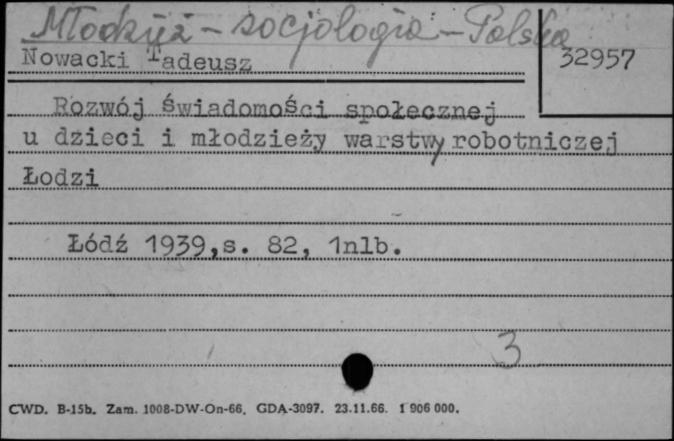 Młodzież - socjologia - Polska
Nowacki Tadeusz
32957
Rozwój świadomości społecznej
u dzieci i młodzieży warstwy robotniczej
Łodzi
Łódź 1939,s. 82, 1nlb.
3
CWD. B-15b. Zam. 1008-DW-On-66. GDA-3097. 23.11.66. 1 906 000.